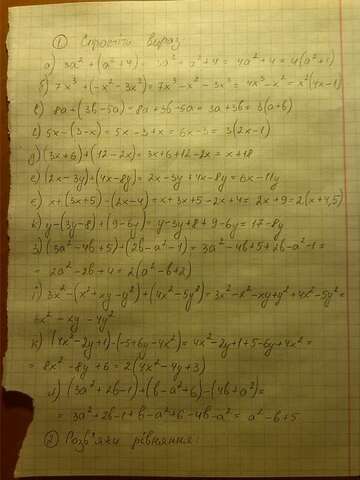 ① Спростіть вираз
а) 3a² + (a² + 4) = 3a² + a² + 4 = 4a² + 4 = 4(a² + 1)
б) 7x³ + (-x² - 3x³) = 7x³ - x² - 3x³ = 4x³ - x² = x²(4x - 1)
в) 8a + (3b - 5a) = 8a + 3b - 5a = 3a + 3b = 3(a + b)
г) 5x - (3 - x) = 5x - 3 + x = 6x - 3 = 3(2x - 1)
д) (3x + 6) + (12 - 2x) = 3x + 6 + 12 - 2x = x + 18
е) (2x - 3y) + (4x - 8y) = 2x - 3y + 4x - 8y = 6x - 11y
є) x + (3x + 5) - (2x - 4) = x + 3x + 5 - 2x + 4 = 2x + 9 = 2(x + 4,5)
ж) y - (3y - 8) + (9 - 6y) = y - 3y + 8 + 9 - 6y = 17 - 8y
з) (3a² - 4b + 5) + (2b - a² - 1) = 3a² - 4b + 5 + 2b - a² - 1 =
= 2a² - 2b + 4 = 2(a² - b + 2)
ї) 3x² - (x² + xy - y²) + (4x² - 5y²) = 3x² - x² - xy + y² + 4x² - 5y² =
6x² - xy - 4y²
к) (4x² - 2y + 1) - (-5 + 6y - 4x²) = 4x² - 2y + 1 + 5 - 6y + 4x² =
= 8x² - 8y + 6 = 2(4x² - 4y + 3)
л) (3a² + 2b - 1) + (b - a² + 6) - (4b + a²) =
= 3a² + 2b - 1 + b - a² + 6 - 4b - a² = a² - b + 5
② Розв'яжи рівняння: